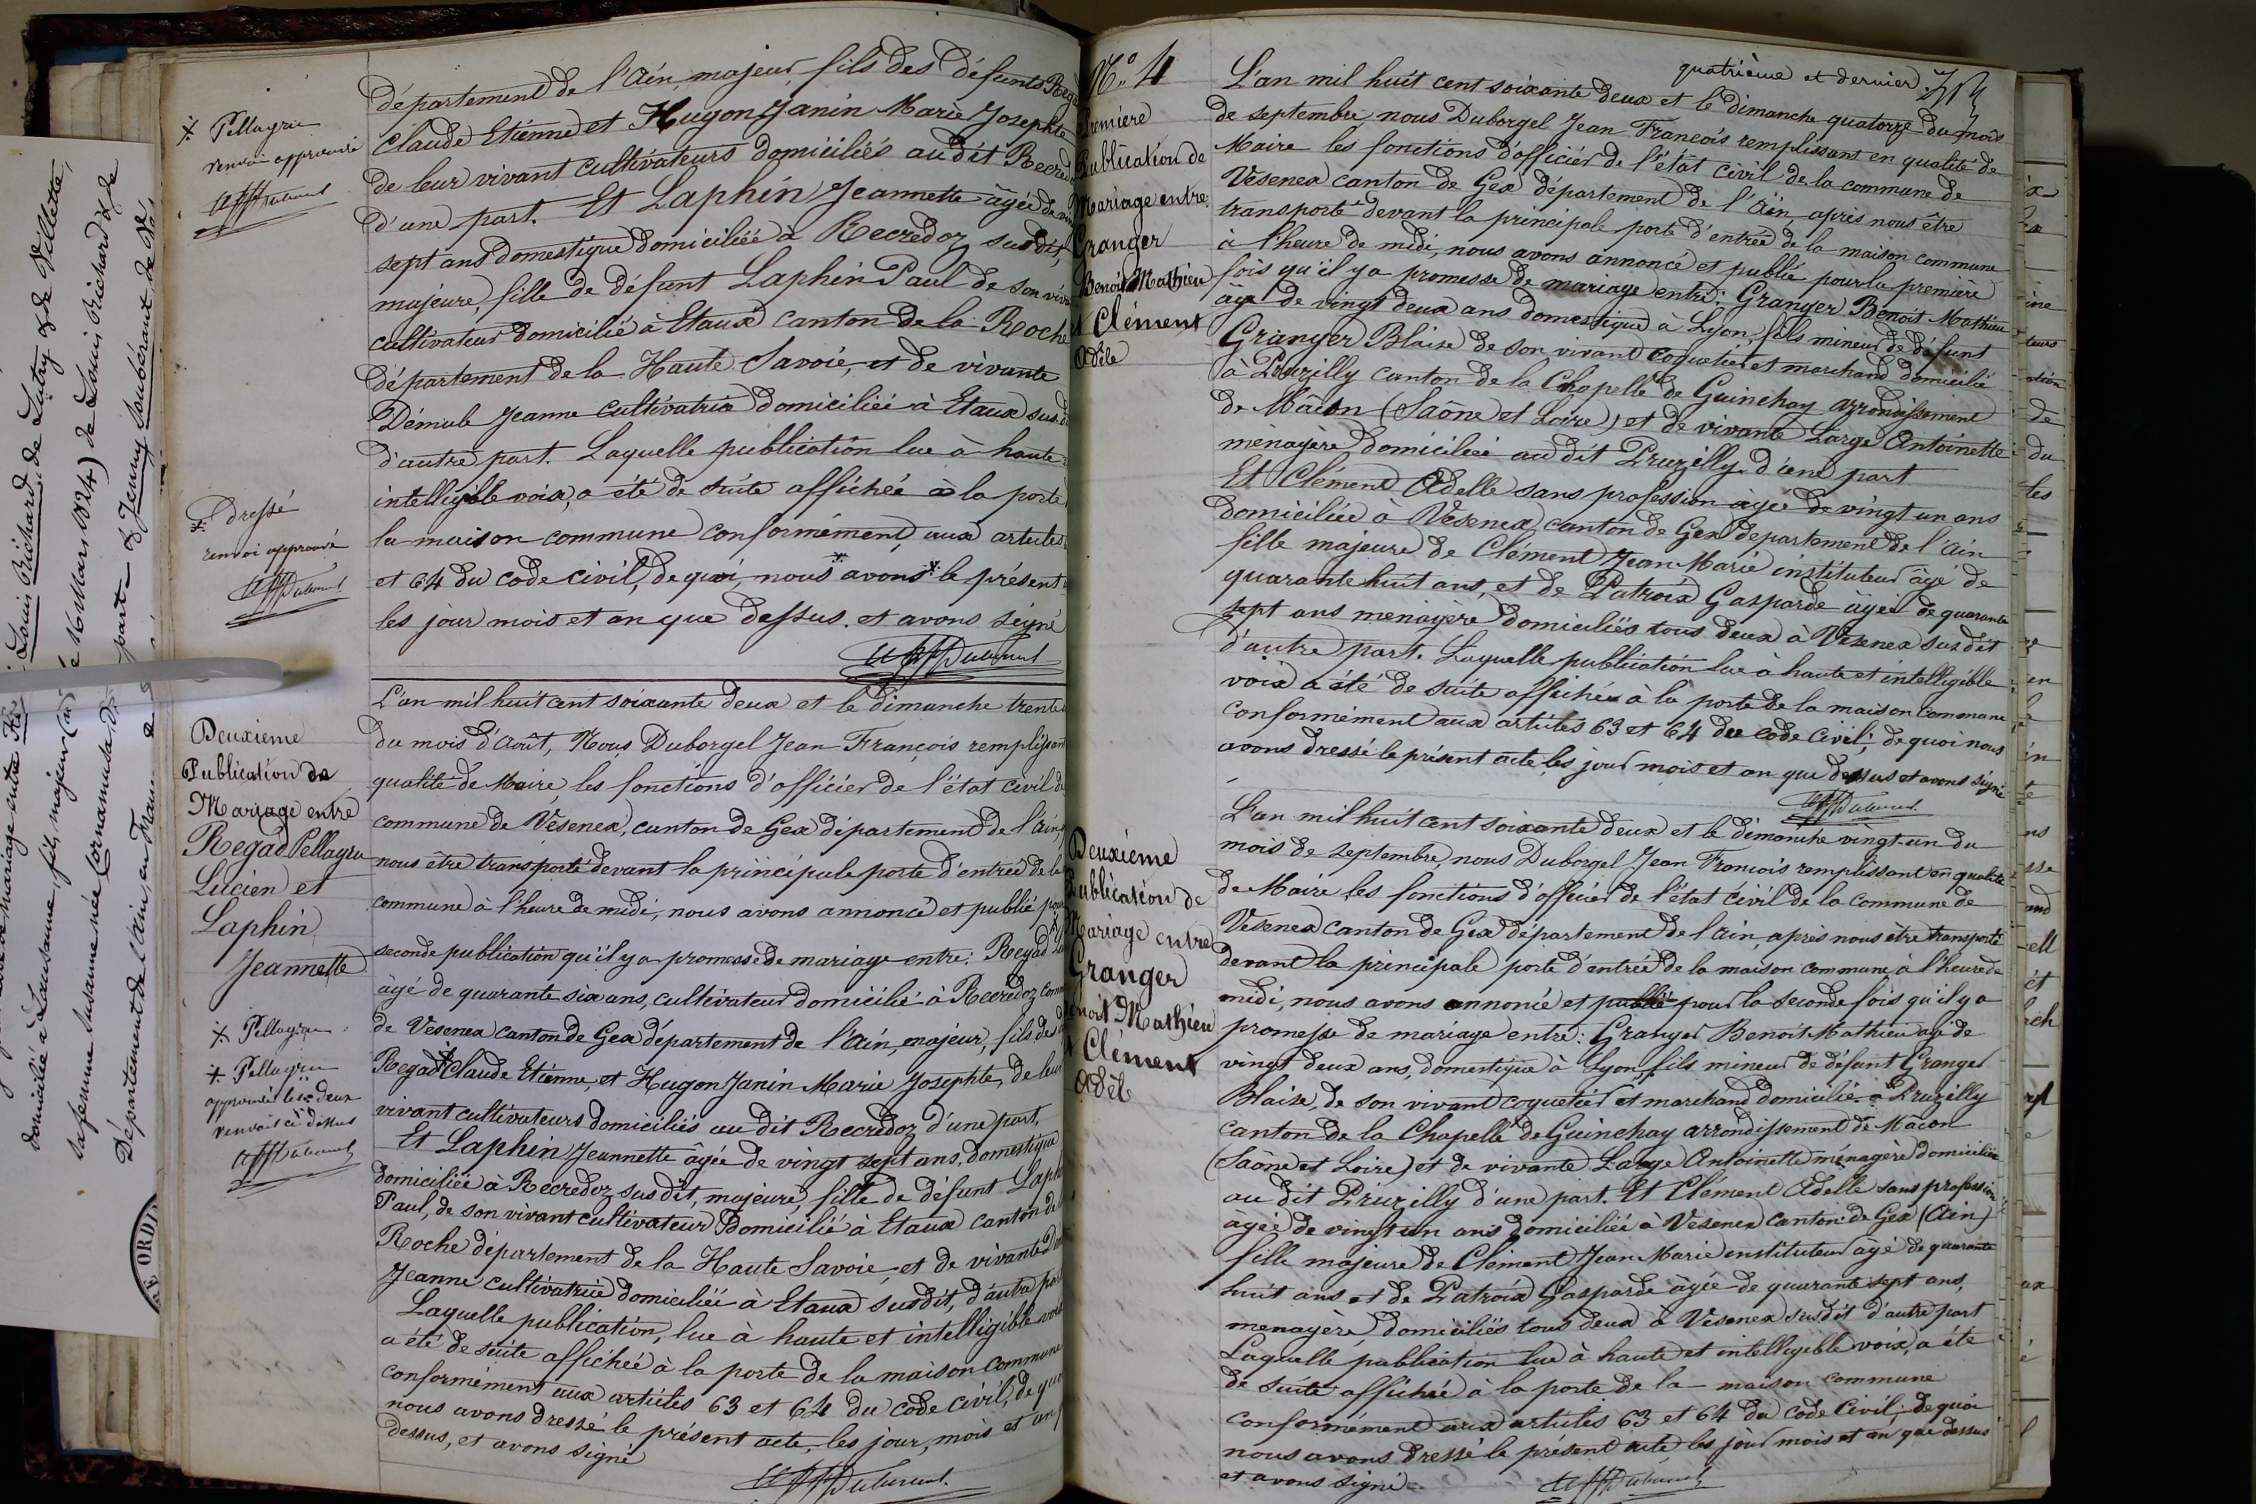 département de l'Ain, majeur, fils des défunts Reg
Claude Etienne et Hugon Janin Marie Josephte
de leur vivant cultivateurs domiciliés audit Recred
d'une part. Et Laphin Jeannette âgée de vin
sept ans domestique domiciliée à Recredoz susdit,
majeure, fille de défunt Laphin Paul de son viva
cultivateur domicilié à Etaux canton de la Roche
département de la Haute Savoie, et de vivante
Démule Jeanne cultivatrice domiciliée à Etaux sus d
d'autre part. Laquelle publication lue à haute
intelligible voix, a été de suite affichée à la porte
la maison commune conformément, aux articles
et 64 du code civil, de quoi nous avons * le présent
les jour mois et an que dessus. et avons signé
* Pellagru
renvoi approuvé
* Dressé
renvoi approuvé
Deuxième
Publication de
Mariage entre
Regad Pellagru
Lucien et
Laphin
Jeannette
L'an mil huit cent soixante deux et le dimanche trente
du mois d'Août, Nous Duborgel Jean François remplissant
qualité de Maire, les fonctions d'officier de l'état civil de
commune de Vesenex, canton de Gex département de l'ain,
nous être transporté devant la principale porte d'entrée de la
commune à l'heure de midi, nous avons annoncé et publié pour
seconde publication qu'il y a promesse de mariage entre: Regad
âgé de quarante six ans, cultivateur domicilié à Recredoz com
de Vesenex canton de Gex département de l'Ain, majeur, fils des
Regad * Claude Etienne, et Hugon Janin Marie Josephte, de leur
vivant cultivateurs domiciliés au dit Recredoz d'une part,
Et Laphin Jeannette âgée de vingt sept ans, domestique
domiciliée à Recredoz sus dit, majeure, fille de défunt Laph
Paul, de son vivant cultivateur domicilié à Etaux canton de
Roche département de la Haute Savoie, et de vivante D
Jeanne cultivatrice domiciliée à Etaux susdit, d'autre part
Laquelle publication, lue à haute et intelligible voix
a été de suite affichée à la porte de la maison commune
conformément aux articles 63 et 64 du code civil, de quoi
nous avons dressé le présent acte, les jour, mois et an
dessus, et avons signé
* Pellagru
* Pellagru
approuvé les deux
renvois ci dessus
N.° 4
quatrième et dernier.
Première
Publication de
Mariage entre
Granger
Benoit Mathieu
et Clément
Adèle
L'an mil huit cent soixante deux et le dimanche quatorze du mois
de septembre, nous Duborgel Jean François remplissant en qualité de
Maire les fonctions d'officier de l'état civil de la commune de
Vesenex canton de Gex département de l'Ain, après nous être
transporté devant la principale porte d'entrée de la maison commune
à l'heure de midi, nous avons annoncé et publié pour la première
fois qu'il y a promesse de mariage entre: Granger Benoit Mathieu
âgé de vingt deux ans domestique à Lyon, fils mineur de défunt
Granger Blaise de son vivant coquetier et marchand domicilié
à Pruzilly canton de la Chapelle de Guinchay arrondissement
de Mâcon (Saône et Loire), et de vivante Large Antoinette
ménagère domiciliée au dit Pruzilly. d'une part
Et Clément Adelle sans profession âgée de vingt un ans
domiciliée à Vesenex canton de Gex département de l'Ain
fille majeure de Clément Jean Marie instituteur âgé de
quarante huit ans, et de Patroix Gasparde âgée de quarante
sept ans menagère domiciliés tous deux à Vesenex susdit
d'autre part. Laquelle publication lue à haute et intelligible
voix a été de suite affichée à la porte de la maison commune
conformément aux articles 63 et 64 du code Civil; de quoi nous
avons dressé le présent acte les jour mois et an que dessus et avons signé
Deuxième
Publication de
Mariage entre
Granger
Benoit Mathieu
et Clément
Adèle
L'an mil huit cent soixante deux et le dimanche vingt-un du
mois de septembre, nous Duborgel Jean François remplissant en qualité
de Maire les fonctions d'officier de l'état civil de la commune de
Vesenex canton de Gex département de l'ain, après nous être transporté
devant la principale porte d'entrée de la maison commune, à l'heure de
midi, nous avons annoncé et publié pour la seconde fois qu'il y a
promesse de mariage entre: Granger Benoit Mathieu agé de
vingt deux ans, domestique à Lyon, fils mineur de défunt Granger
Blaise, de son vivant coquetier et marchand domicilié à Pruzilly
canton de la Chapelle de Guinchay arrondissement de Mâcon
(Saône et Loire) et de vivante Large Antoinette ménagère domiciliée
au dit Pruzilly d'une part. Et Clément Adelle sans profession
âgée de vingt un ans domiciliée à Vesenex canton de Gex (Ain)
fille majeure de Clément Jean Marie instituteur âgé de quarante
huit ans et de Patroix Gasparde âgée de quarante sept ans,
menagère, domiciliés tous deux à Vesenex susdit d'autre part
Laquelle publication lue à haute et intelligible voix, a été
de suite affichée à la porte de la maison commune
conformément aux articles 63 et 64 du code Civil; de quoi
nous avons dressé le présent acte, les jour mois et an que dessus
et avons signé